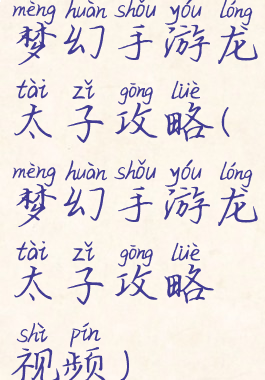 mèng huàn shǒu yóu lóng
梦幻手游龙
tài zǐ gōng lüè
太子攻略(
mèng huàn shǒu yóu lóng
梦幻手游龙
tài zǐ gōng lüè
太子攻略
shì pín
视频)